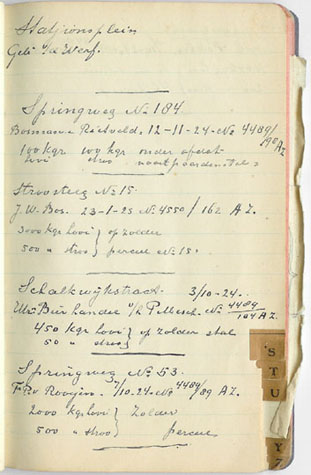 Statjonsplein
Gebr v/d Werf.
Springweg No 184
Bosman Rietveld. 12-11-24 No 4489/190 AZ
100 kgr 100 kgr onder
hooi stroo
Stroosteeg No 15.
J. W. Bos. 23-1-25 No 4550/162 AZ.
3000 kgr hooi } op zolder
500 " stroo } perceel No 15.
Schalkwijkstraat. 3/10-24.
No 4489/184 AZ.
450 kgr hooi } op zolder stal
50 " stroo
Springweg No 53.
F. Rooijen. /10-24 No 4489/89 AZ.
2000 kgr hooi } Zolder
500 " stroo } perceel
S
T
U
Y
Z